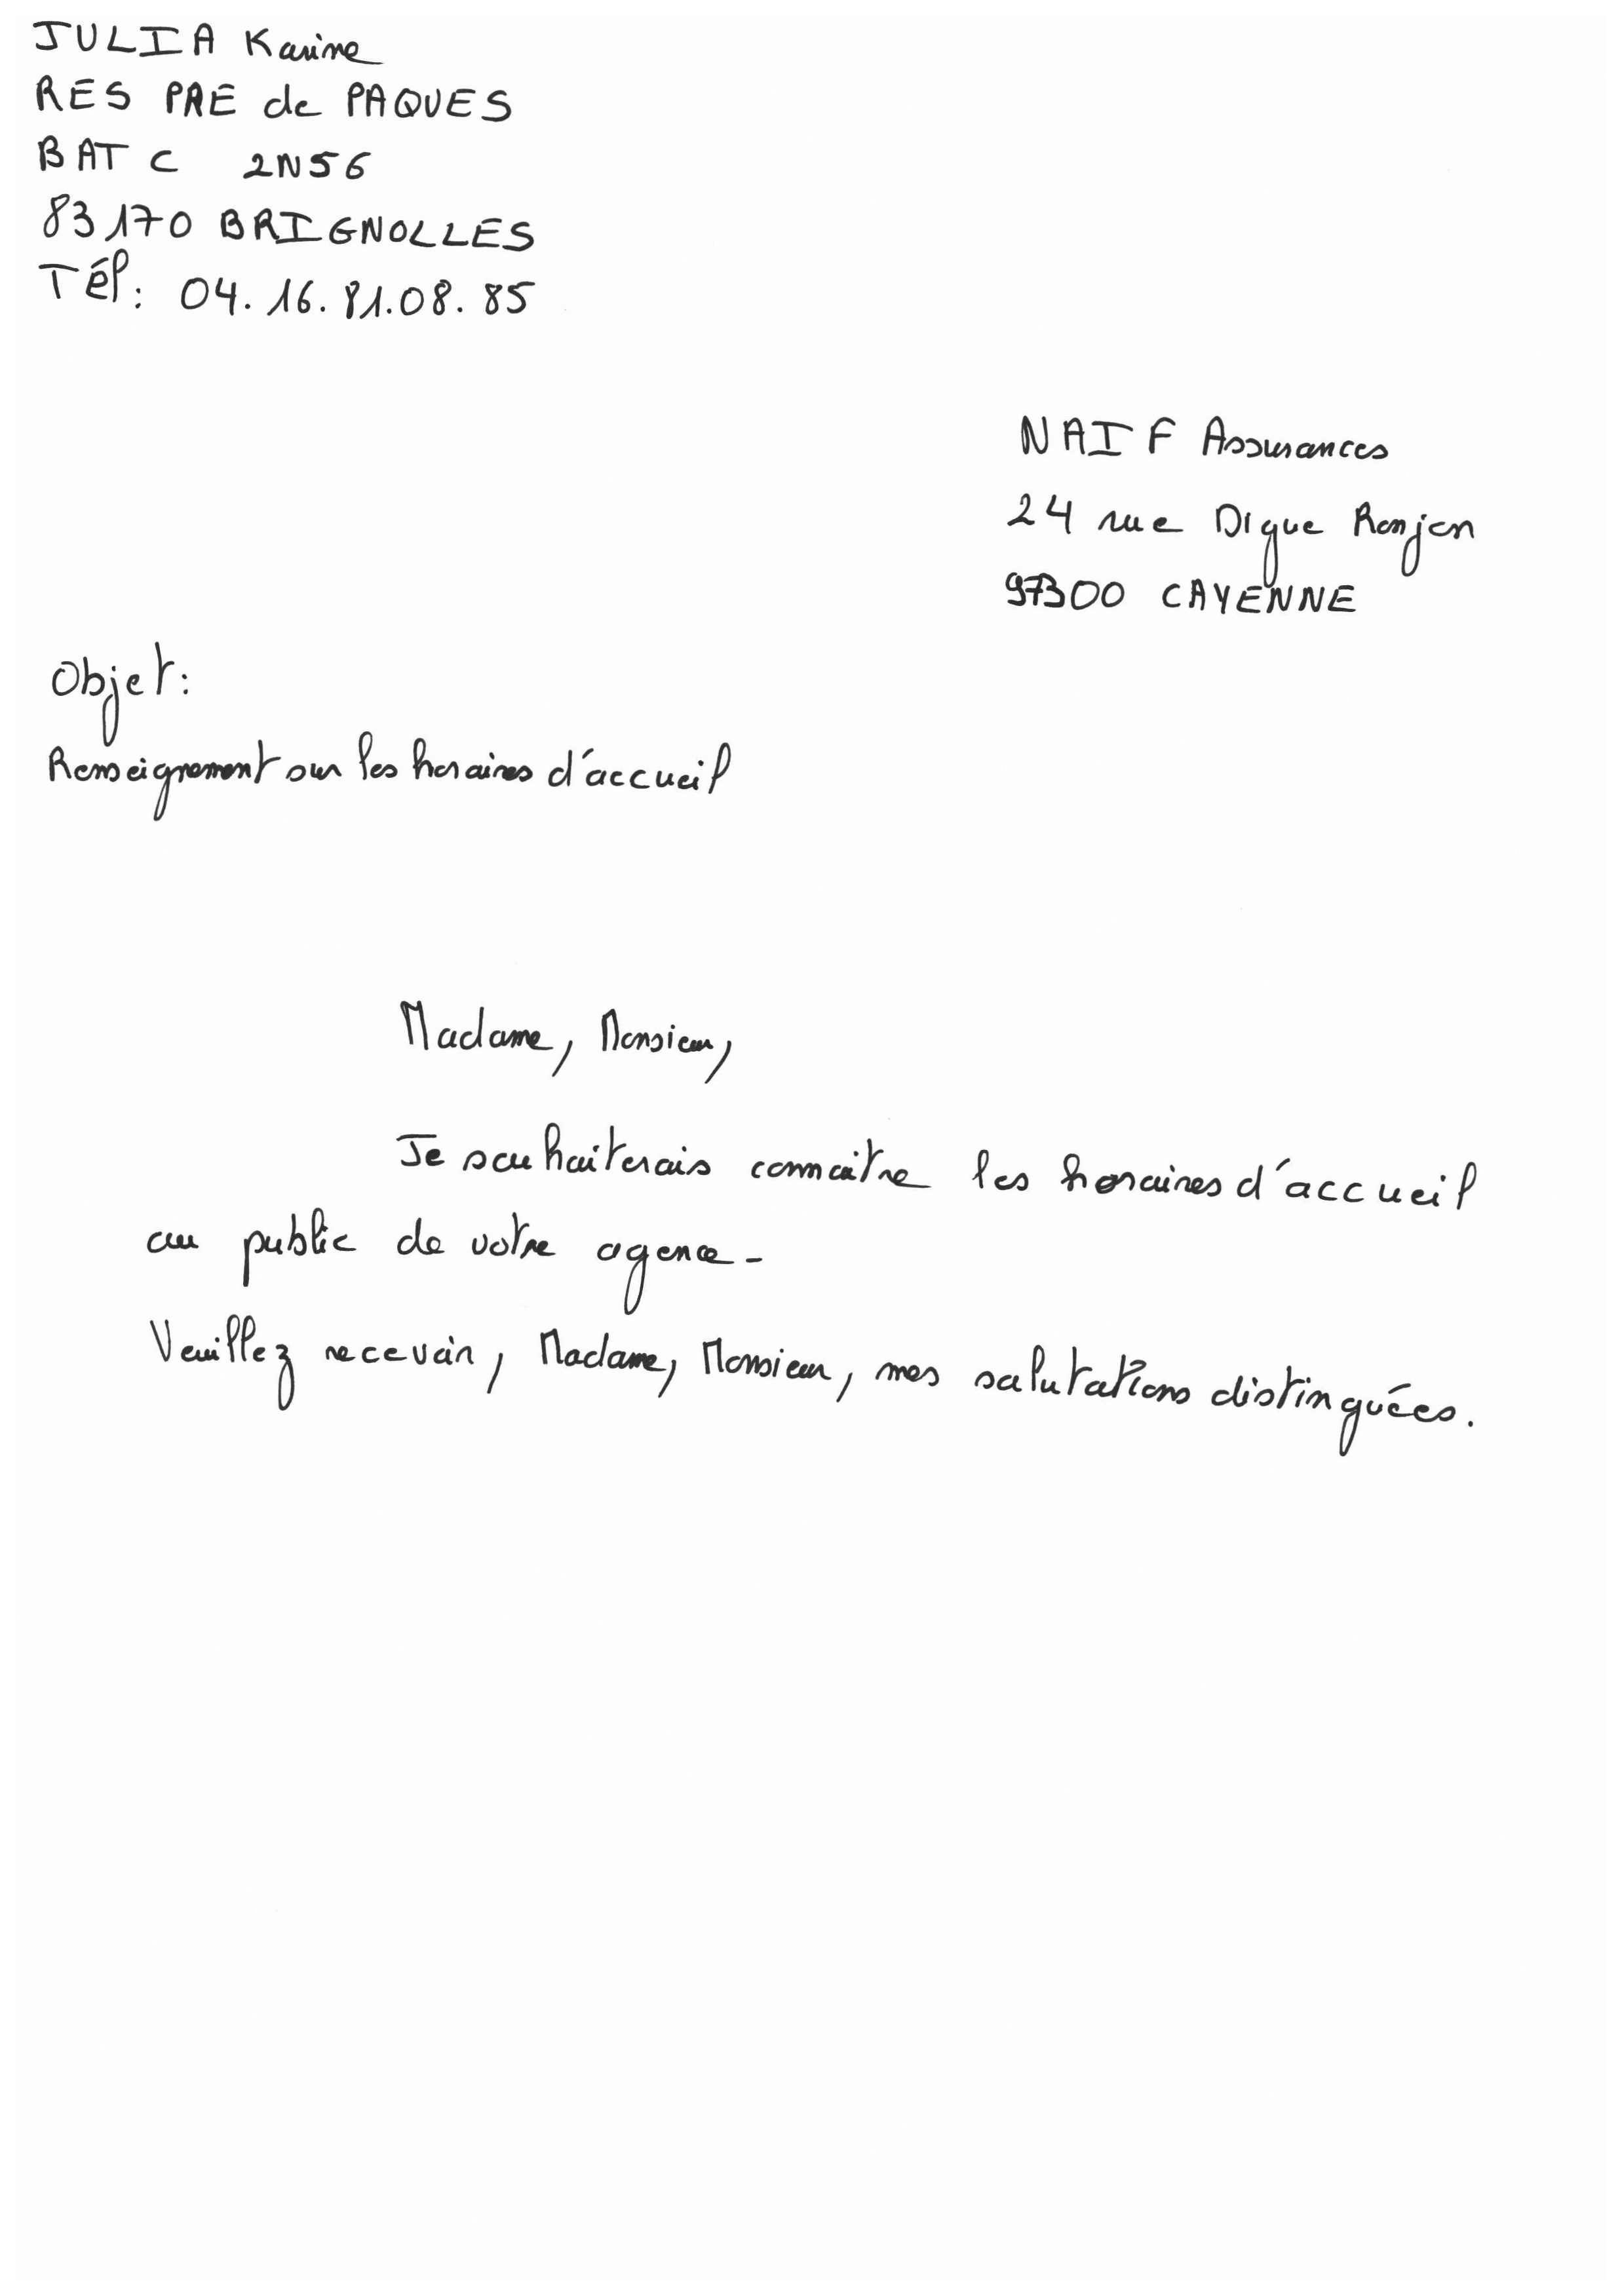 JULIA Karine
RES PRE de PAQUES
BAT C 2N56
83170 BRIGNOLLES
Tél: 04.16.81.08.85
NAIF Assurances
24 rue Digue Ronjon
97300 CAYENNE
Objet:
Renseignement sur les horaires d'accueil
Madame, Monsieur,
Je souhaiterais connaitre les horaires d'accueil
au public de votre agence-
Veuillez recevoir, Madame, Monsieur, mes salutations distinguées.